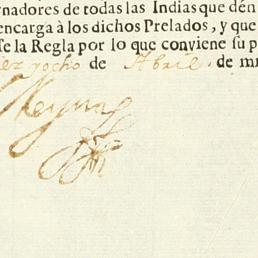 rnadores de todas las Indias que dén
encarga à los dichos Prelados, y que
se la Regla por lo que conviene su p
diez y ocho de Abril. de mi